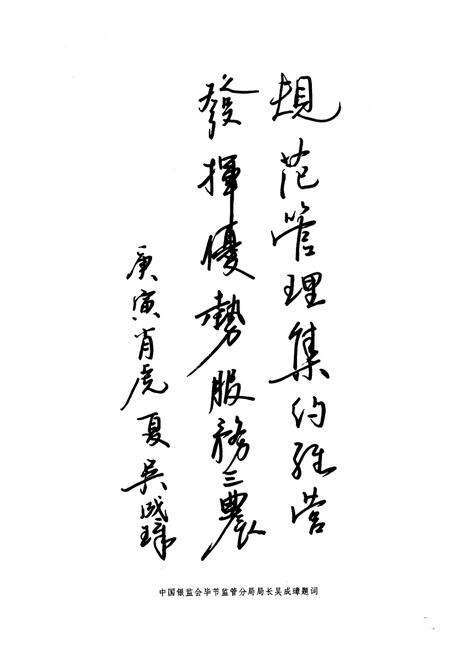 規范管理集约经营
發揮優勢服務三農
庚寅肖虎夏吴成璋
中国银监会毕节监管分局局长吴成璋题词